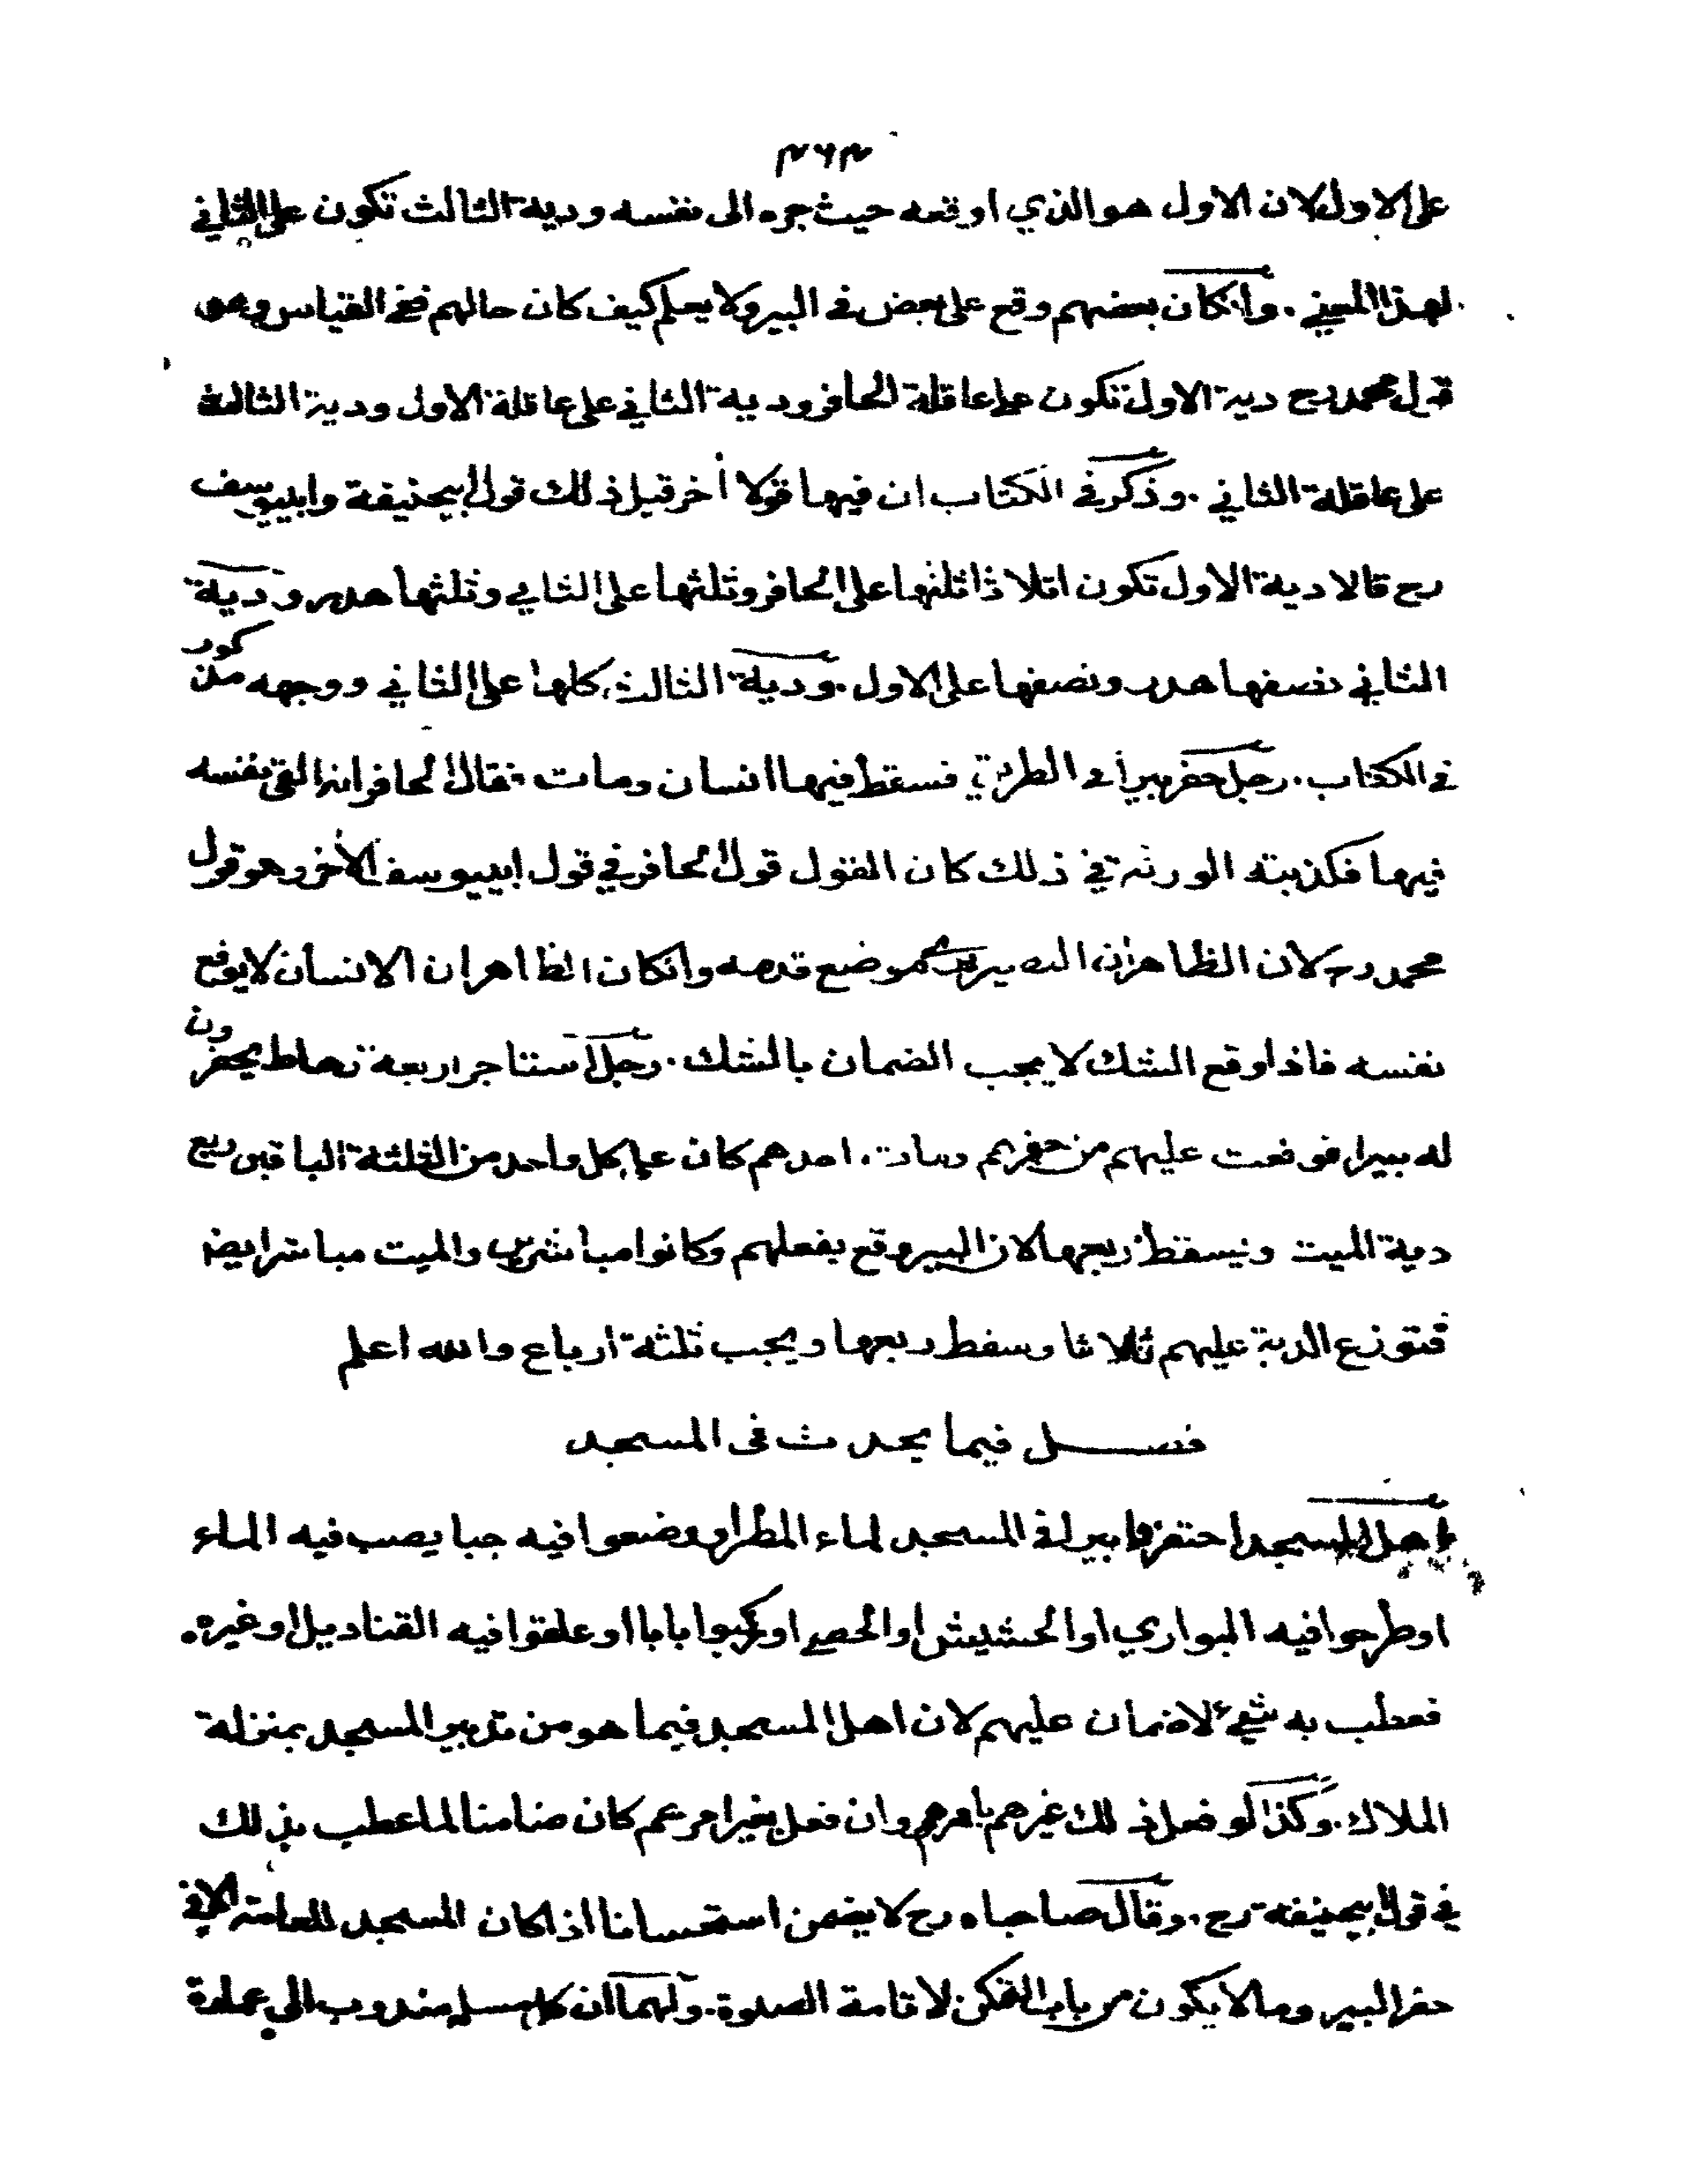 ٣٦٣
على الاول لان الاول هو الذي اوقعه حيث جره الى نفسه ودية الثالث تكون على الثاني
لهذا المعني . وانكان بعضهم وقع على بعض في البير ولا يعلم كيف كان حالهم ففي القياس وهو
قول محمد رح دية الاول تكون على عاقلة الحافر ودية الثاني على عاقلة الاول ودية الثالث
على عاقلة الثاني . وذكر في الكتاب ان فيها قولا أخر قيل ذلك قول ابيحنيفة وابييوسف
رح قالا دية الاول تكون اثلاثا ثلثها على الحافر وثلثها على الثاني وثلثها هدر ودية
الثاني نصفها هدر ونصفها على الاول . ودية الثالث كلها على الثاني ووجهه مذكور
في الكتاب . رجل حفر بيرا في الطريق فسقط فيها انسان ومات فقال الحافر انه القى نفسه
فيها فكذبته الورثة في ذلك كان القول قول الحافر في قول ابييوسف الأخر وهو قول
محمد رح لان الظاهر ان البصير يرى موضع قدمه وانكان الظاهر ان الانسان لا يوقع
نفسه فاذا وقع الشك لا يجب الضمان بالشك . رجل استاجر اربعة رهط يحفرون
له بيرا فوقعت عليهم من حفرهم ومات احدهم كان على كل واحد من الثلثة الباقين ربع
دية الميت ويسقط ربعها لان البير وقع بفعلهم وكانوا مباشرين والميت مباشر ايضا
فتوزع الدية عليهم ثلاثا وسقط ربعها ويجب ثلثة ارباع والله اعلم
فصل فيما يحدث في المسجد
اهل المسجد احتفروا بيرا في المسجد لماء المطر او وضعوا فيه جبا يصب فيه الماء
او طرحوا فيه البواري او الحشيش او الحصى او ركبوا بابا او علقوا فيه القناديل او غيره
فعطب به شيء لا ضمان عليهم لان اهل المسجد فيما هو من تدبير المسجد بمنزلة
الملاك . وكذا لو فعل ذلك غيرهم بامرهم وان فعل بغير امرهم كان ضامنا لما عطب بذلك
في قول ابيحنيفة رح . وقال صاحباه رح لا يضمن استحسانا اذا كان المسجد للعامة الا في
حفر البير وما لا يكون من باب التمكن لاقامة الصلوة . ولهما ان كل مسلم مندوب الى عمارة